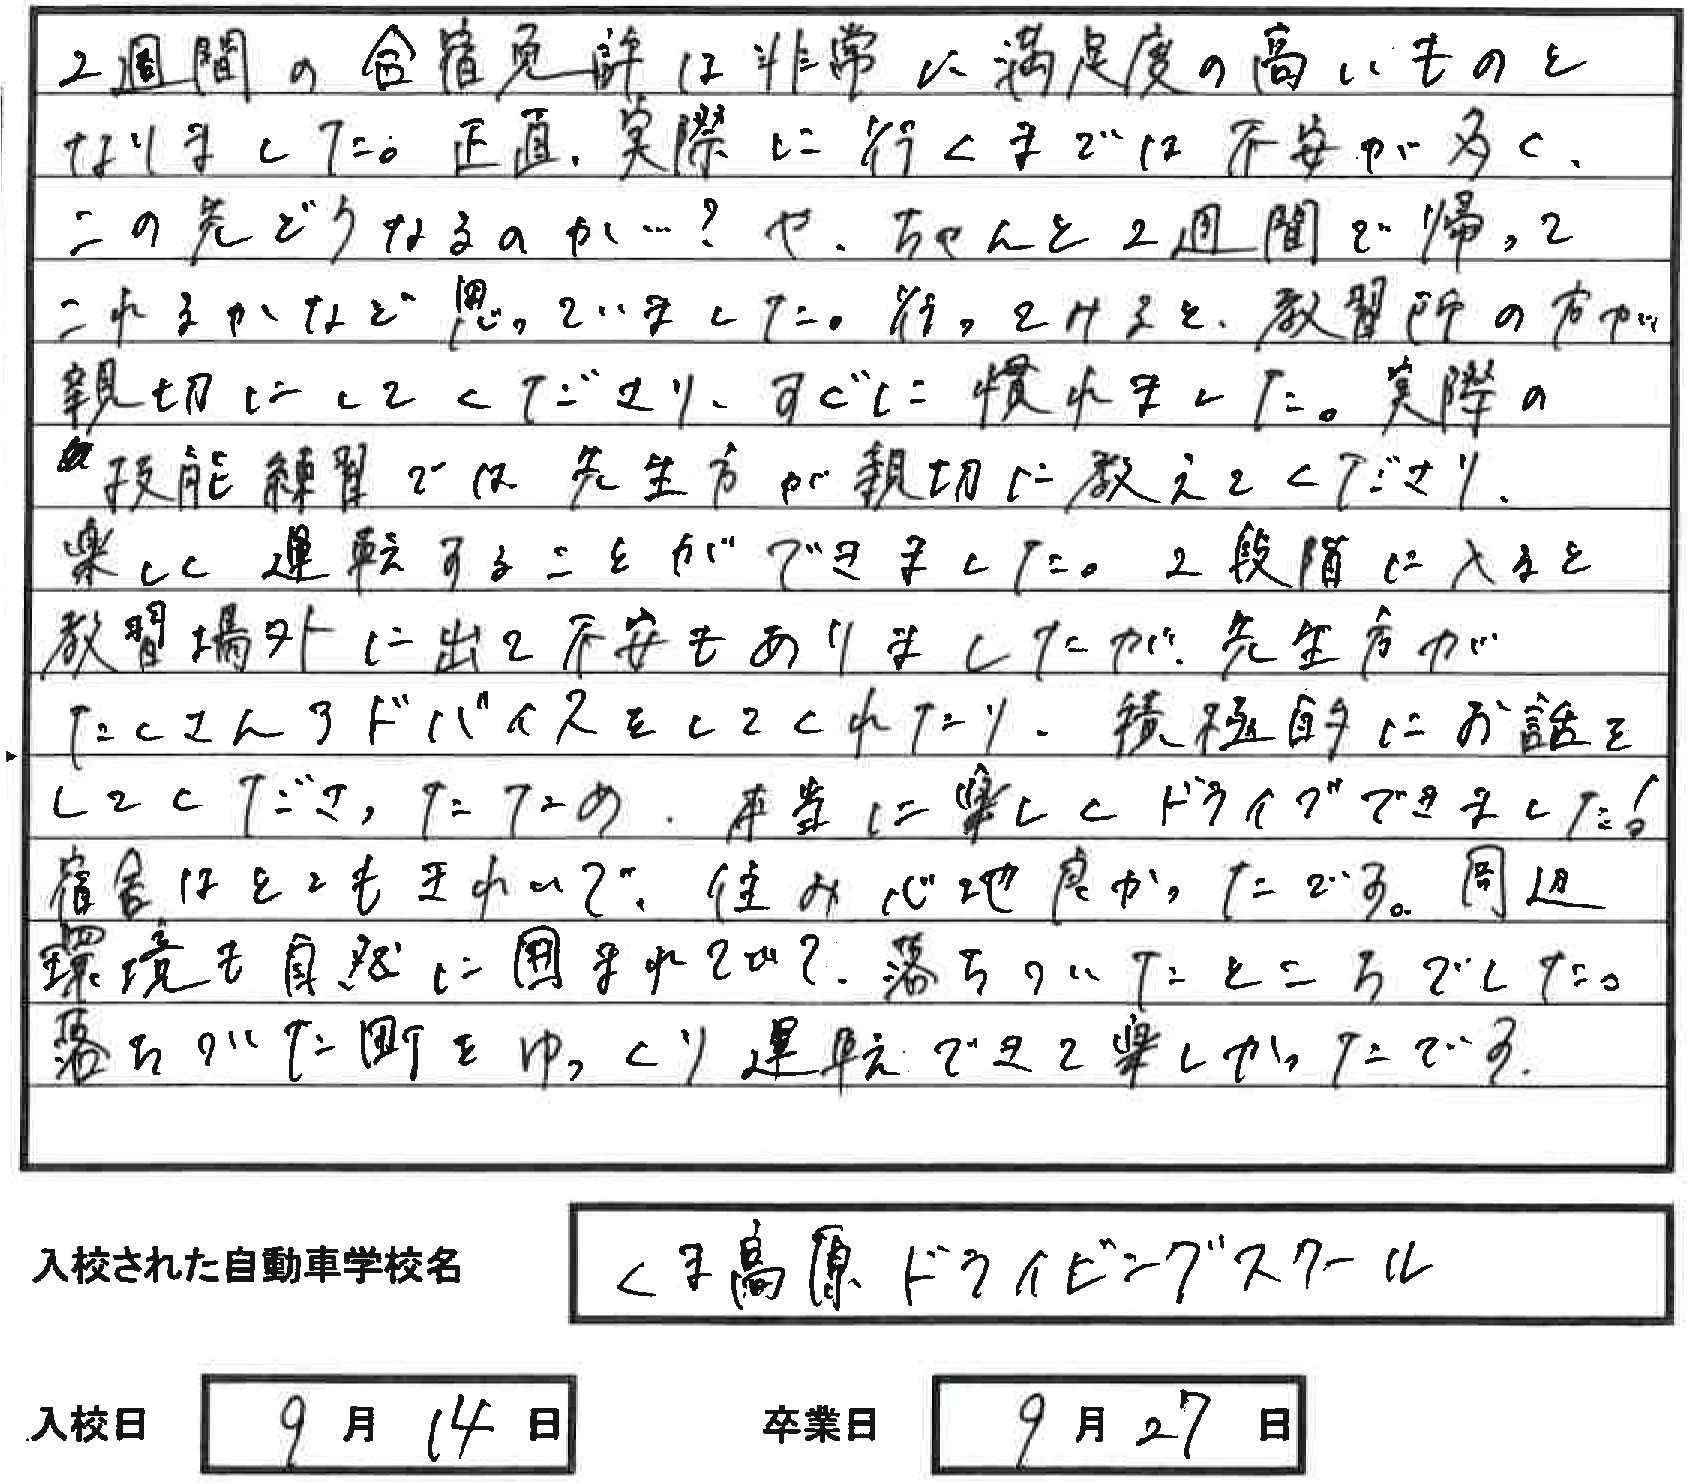 2週間の合宿免許は非常に満足度の高いものと
なりました。正直、実際に行くまでは不安が多く、
この先どうなるのか…?や、ちゃんと2週間で帰って
これるかなど思っていました。行ってみると、教習所の方が
親切にしてくださり、すぐに慣れました。実際の
技能練習では先生方が親切に教えてくださり、
楽しく運転することができました。2段階に入ると
教習場外に出て不安もありましたが、先生方が
たくさんアドバイスをしてくれたり、積極的にお話を
してくださったため、本当に楽しくドライブできました!
宿舎はとてもきれいで、住み心地良かったです。周辺
環境も自然に囲まれてて、落ちついたところでした。
落ちついた町をゆっくり運転できて楽しかったです。
入校された自動車学校名 くま高原ドライビングスクール
入校日 9月14日 卒業日 9月27日